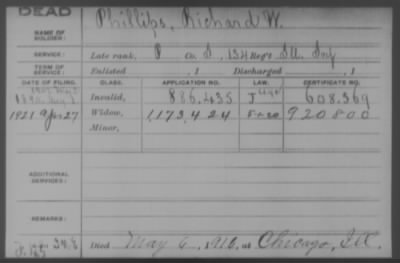 DEAD
NAME OF SOLDIER: Phillips, Richard W.
SERVICE: Late rank, P Co. I, 134 Reg't Ill. Inf
TERM OF SERVICE: Enlisted , 1 Discharged , 1
DATE OF FILING. CLASS. APPLICATION NO. LAW. CERTIFICATE NO.
Invalid, 886,435 J 608,369
1921 Apr 27 Widow, 1,173,424 920800
Minor,
ADDITIONAL SERVICES:
REMARKS:
Died May 6, 1916, at Chicago, Ill.